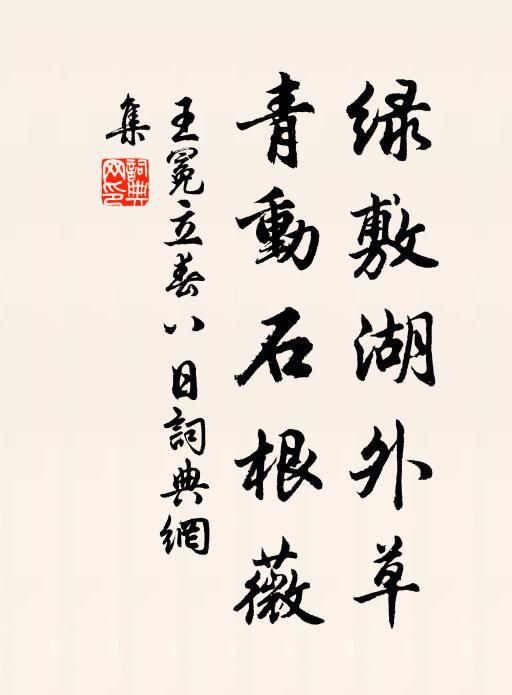 绿敷湖外草
青動石根薇
王冕立春八日詞典網
集
詞典網印